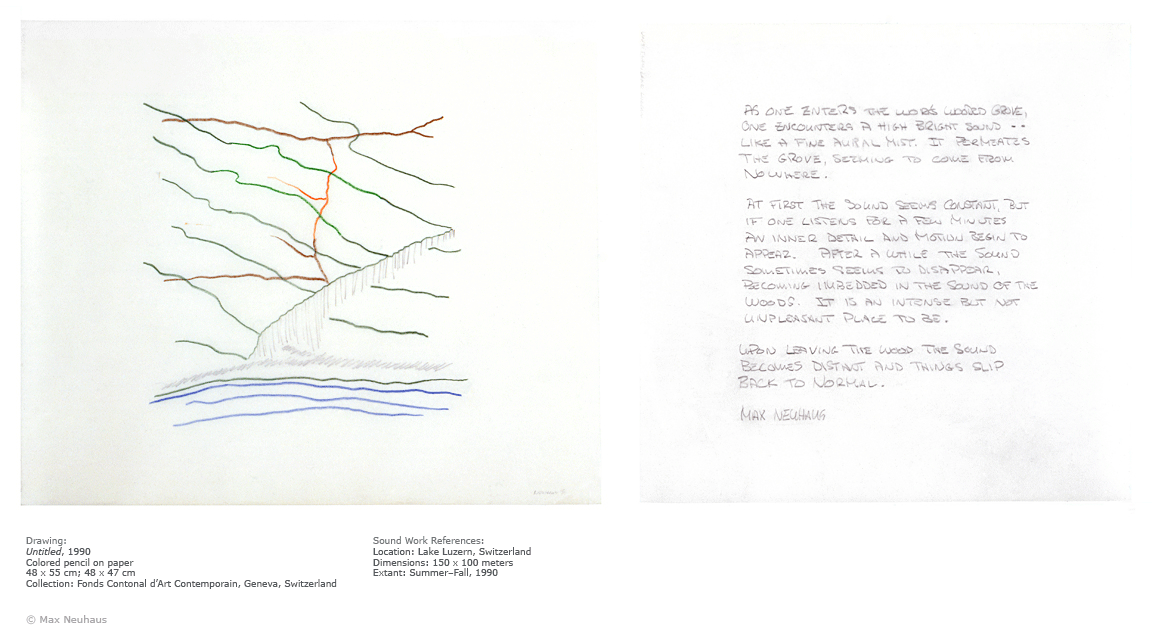 AS ONE ENTERS THE WOODED GROVE,
ONE ENCOUNTERS A HIGH BRIGHT SOUND --
LIKE A FINE AURAL MIST. IT PERMEATES
THE GROVE, SEEMING TO COME FROM
NOWHERE.
AT FIRST THE SOUND SEEMS CONSTANT, BUT
IF ONE LISTENS FOR A FEW MINUTES
AN INNER DETAIL AND MOTION BEGIN TO
APPEAR. AFTER A WHILE THE SOUND
SOMETIMES SEEMS TO DISAPPEAR,
BECOMING IMBEDDED IN THE SOUND OF THE
WOODS. IT IS AN INTENSE BUT NOT
UNPLEASANT PLACE TO BE.
UPON LEAVING THE WOOD THE SOUND
BECOMES DISTANT AND THINGS SLIP
BACK TO NORMAL.
MAX NEUHAUS
Drawing:
Untitled, 1990
Colored pencil on paper
48 x 55 cm; 48 x 47 cm
Collection: Fonds Contonal d'Art Contemporain, Geneva, Switzerland
Sound Work References:
Location: Lake Luzern, Switzerland
Dimensions: 150 x 100 meters
Extant: Summer–Fall, 1990
© Max Neuhaus